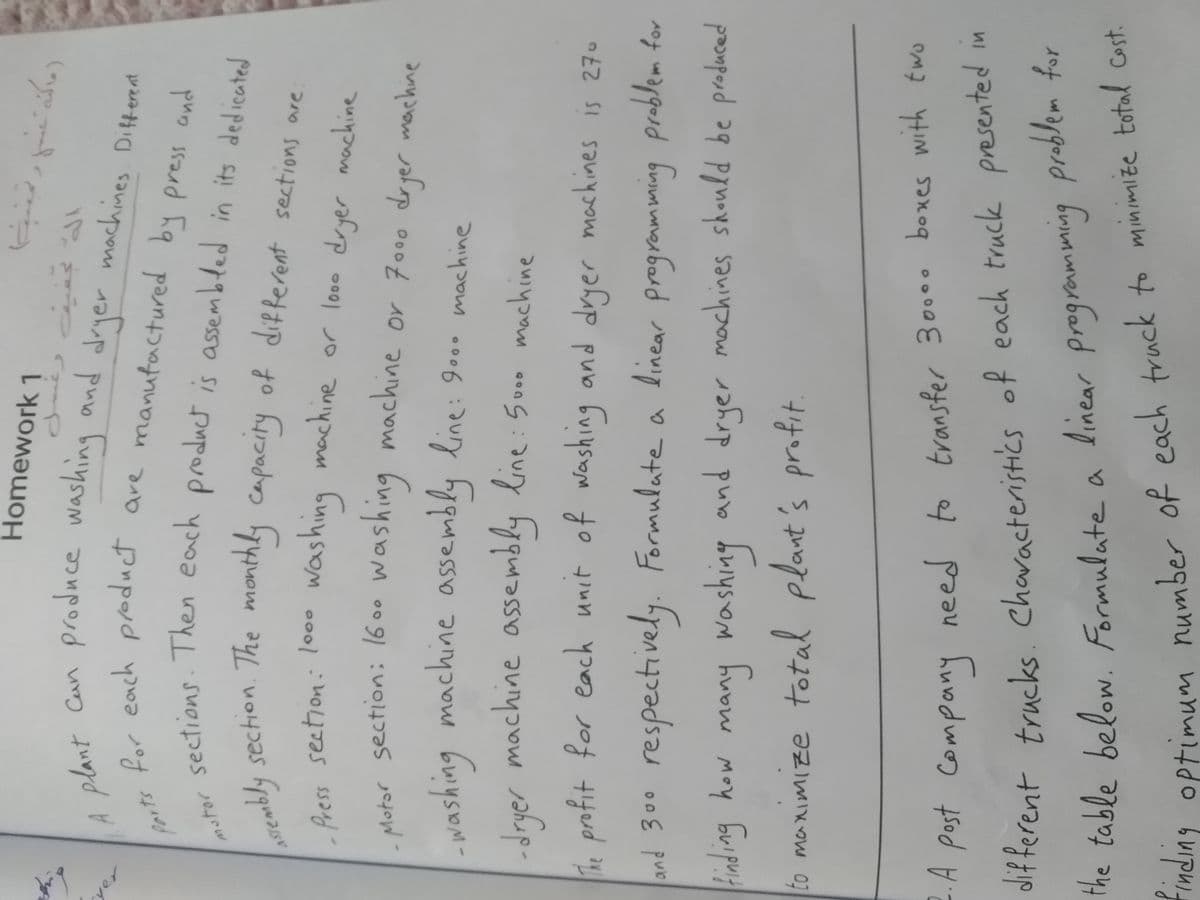 Homework 1
1. A plant can produce washing and dryer machines. Different
parts for each product are manufactured by press and
motor sections. Then each product is assembled in its dedicated
assembly section. The monthly capacity of different sections are:
- Press section: 1000 washing machine or 1000 dryer machine
- Motor section: 1600 washing machine or 7000 dryer machine
- washing machine assembly line: 9000 machine
- dryer machine assembly line: 5000 machine
The profit for each unit of washing and dryer machines is 270
and 300 respectively. Formulate a linear programming problem for
finding how many washing and dryer machines should be produced
to maximize total plant's profit.
2. A post company need to transfer 30000 boxes with two
different trucks. Characteristics of each truck presented in
the table below. Formulate a linear programming problem for
finding optimum number of each truck to minimize total cost.